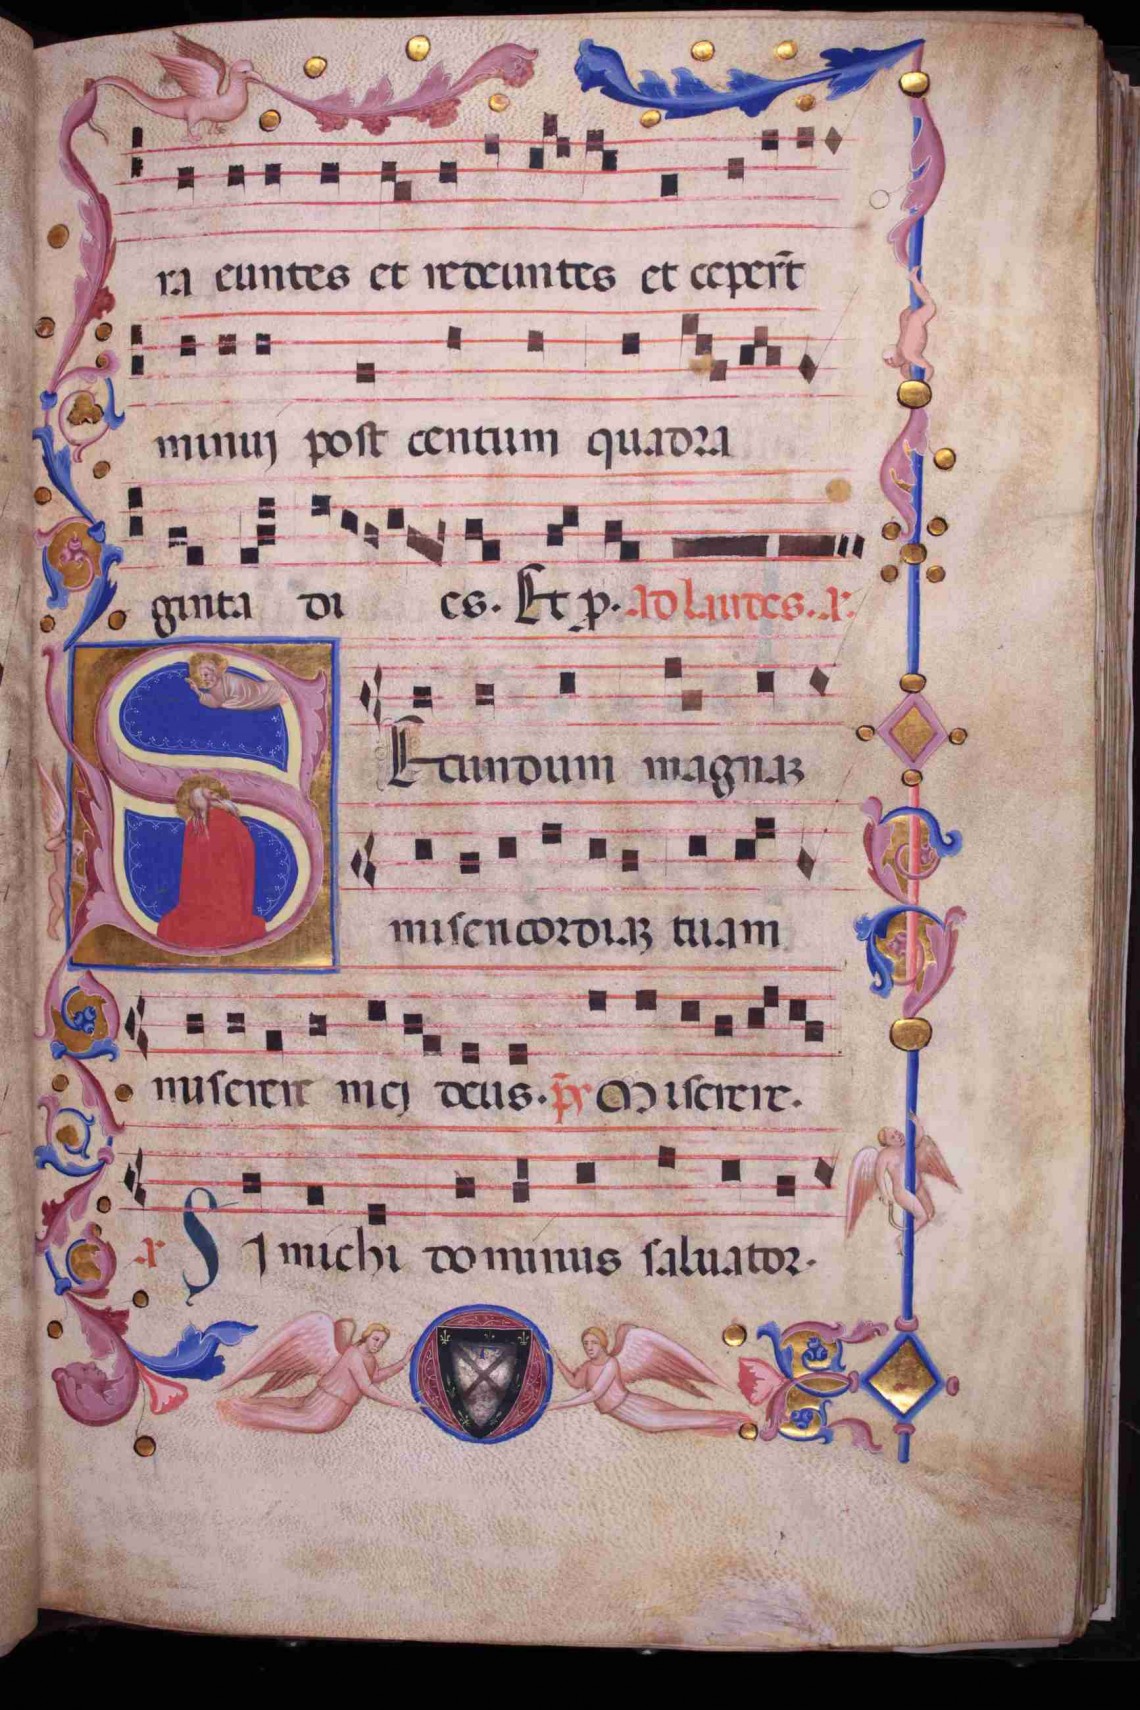 ra euntes et redeuntes et ceper̄t
minui post centum quadra
ginta di es. Et p̱. Ad Laudes. a.
SEcundum magnaȝ
misericordiaȝ tuam
miserere mei deus. p̄s Miserere.
a Si michi dominus saluator.